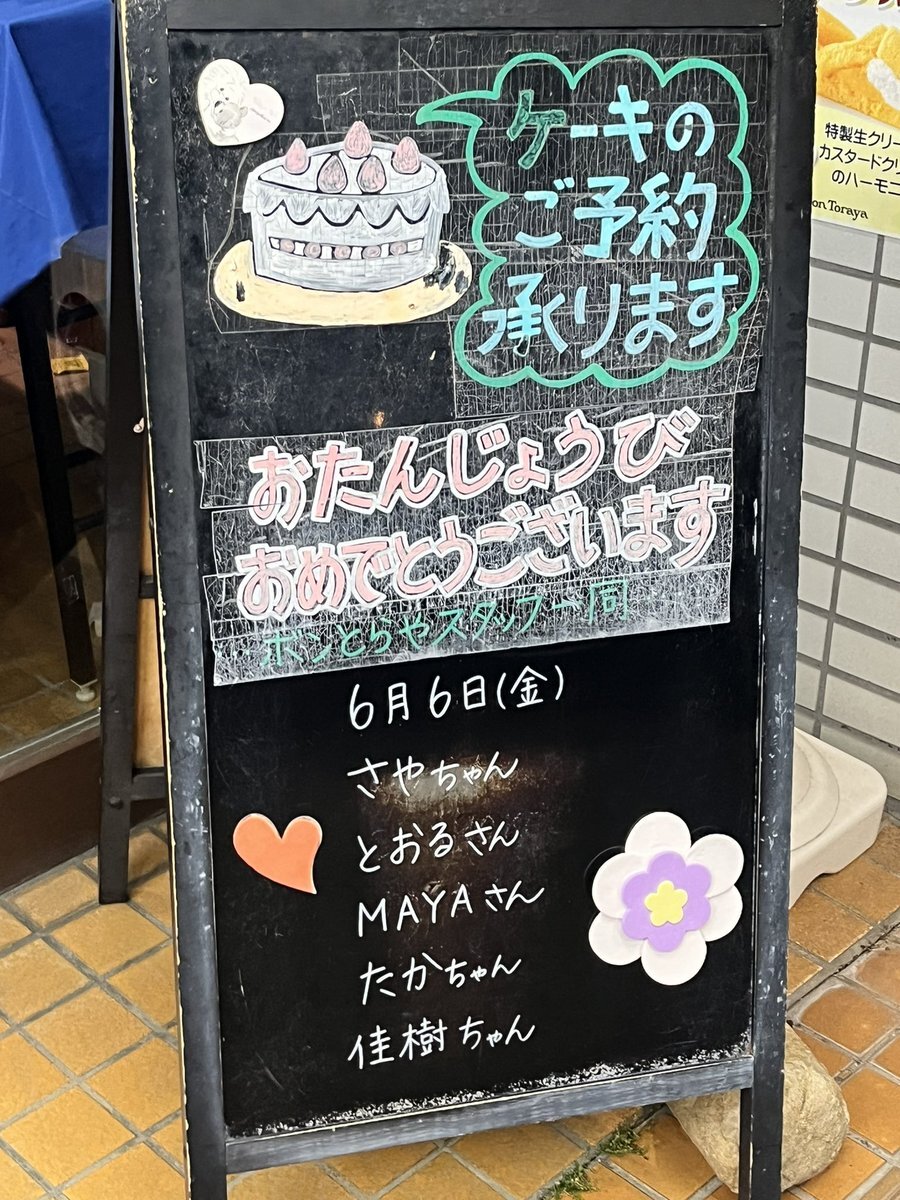 ケーキの
ご予約
承ります
おたんじょうび
おめでとうございます
ボンとらやスタッフ一同
6月6日(金)
さやちゃん
とおるさん
MAYAさん
たかちゃん
佳樹ちゃん
特製生クリー
カスタードクリ
のハーモニ
on Toraya